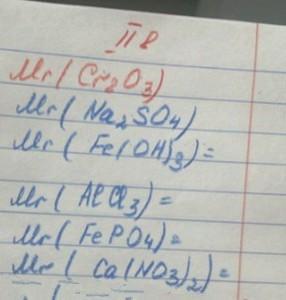 II в
Mr(Cr₂O₃)
Mr(Na₂SO₄)
Mr(Fe(OH)₃)=
Mr(AlCl₃)=
Mr(FePO₄)=
Mr(Ca(NO₃)₂)=